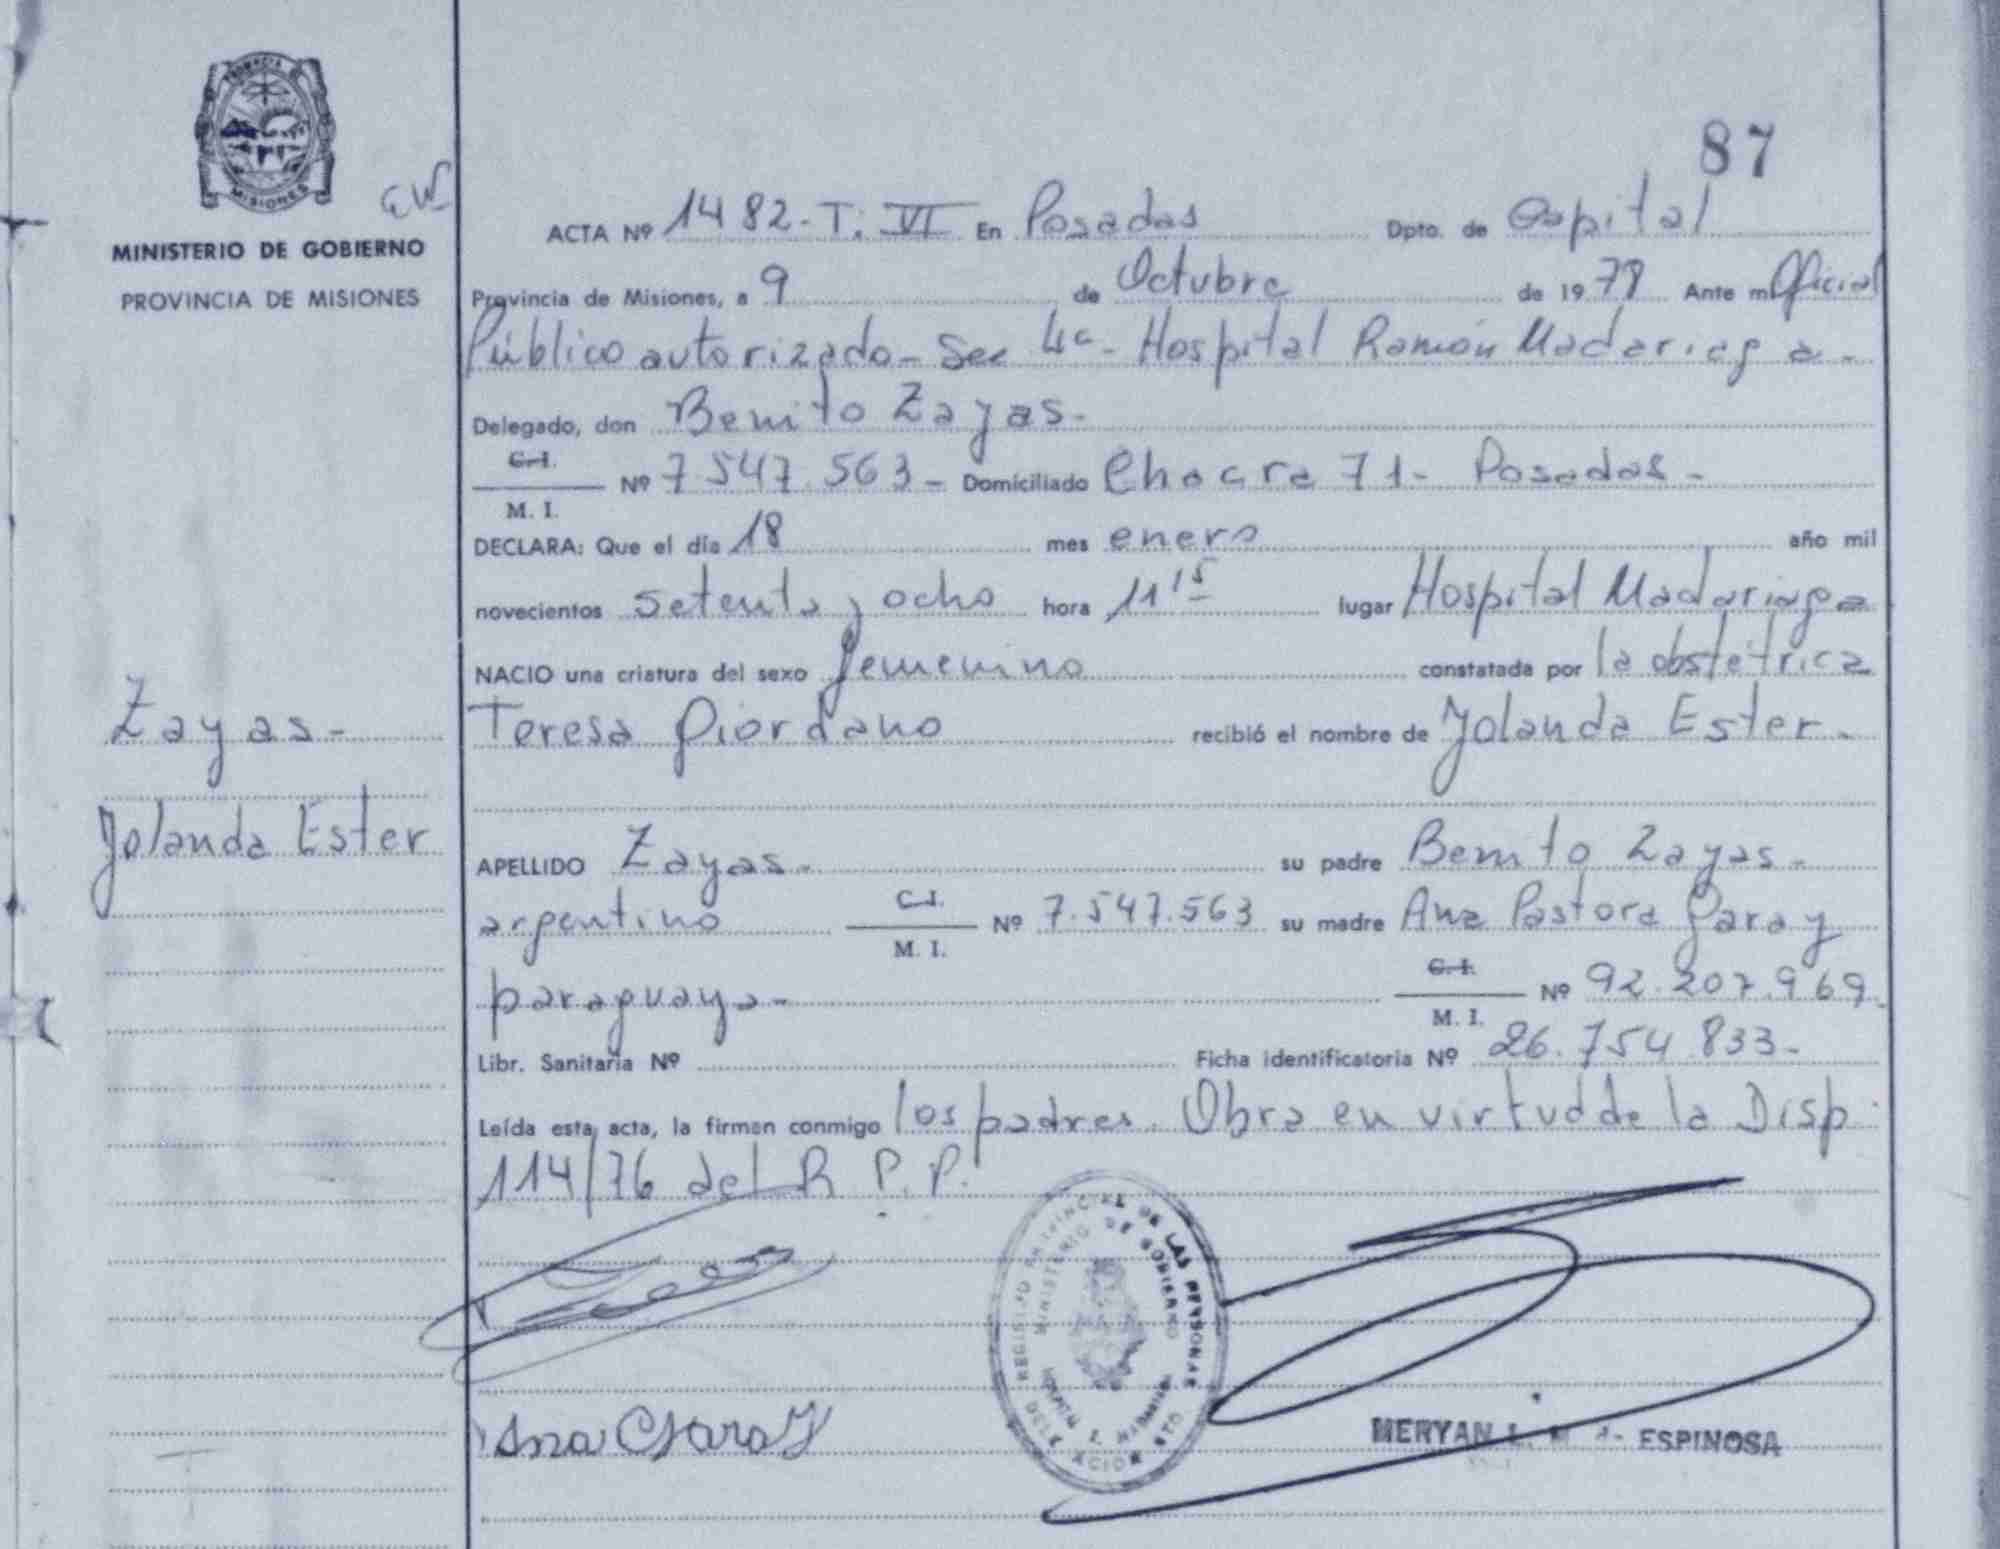 87
PROVINCIA
MISIONES
MINISTERIO DE GOBIERNO
PROVINCIA DE MISIONES
ACTA Nº 1482-T. VI En Posadas Dpto. de Capital
Provincia de Misiones, a 9 de Octubre de 1978 Ante mí Oficial
Público autorizado - Sec 4ª - Hospital Ramón Madariaga -
Delegado, don Benito Zayas -
C. I.
M. I. Nº 7.547.563 - Domiciliado Chacra 71 - Posadas -
DECLARA: Que el día 18 mes enero año mil
novecientos setenta y ocho hora 11 15 lugar Hospital Madariaga
NACIO una criatura del sexo femenino constatada por la obstétrica
Teresa Giordano recibió el nombre de Yolanda Ester -
Zayas -
Yolanda Ester
APELLIDO Zayas - su padre Benito Zayas -
argentino C. I.
M. I. Nº 7.547.563 su madre Ana Pastora Garay
paraguaya - C. I.
M. I. Nº 92.207.969.
Libr. Sanitaria Nº Ficha identificatoria Nº 26.754.833 -
Leída esta acta, la firman conmigo los padres. Obra en virtud de la Disp.
114/76 del R P. P.
REGISTRO PROVINCIAL DE LAS PERSONAS
MINISTERIO DE GOBIERNO
Ana Garay
MERYAN L. ESPINOSA